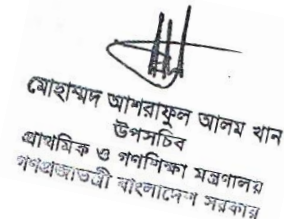 মোহাম্মদ আশরাফুল আলম খান
উপসচিব
প্রাথমিক ও গণশিক্ষা মন্ত্রণালয়
গণপ্রজাতন্ত্রী বাংলাদেশ সরকার